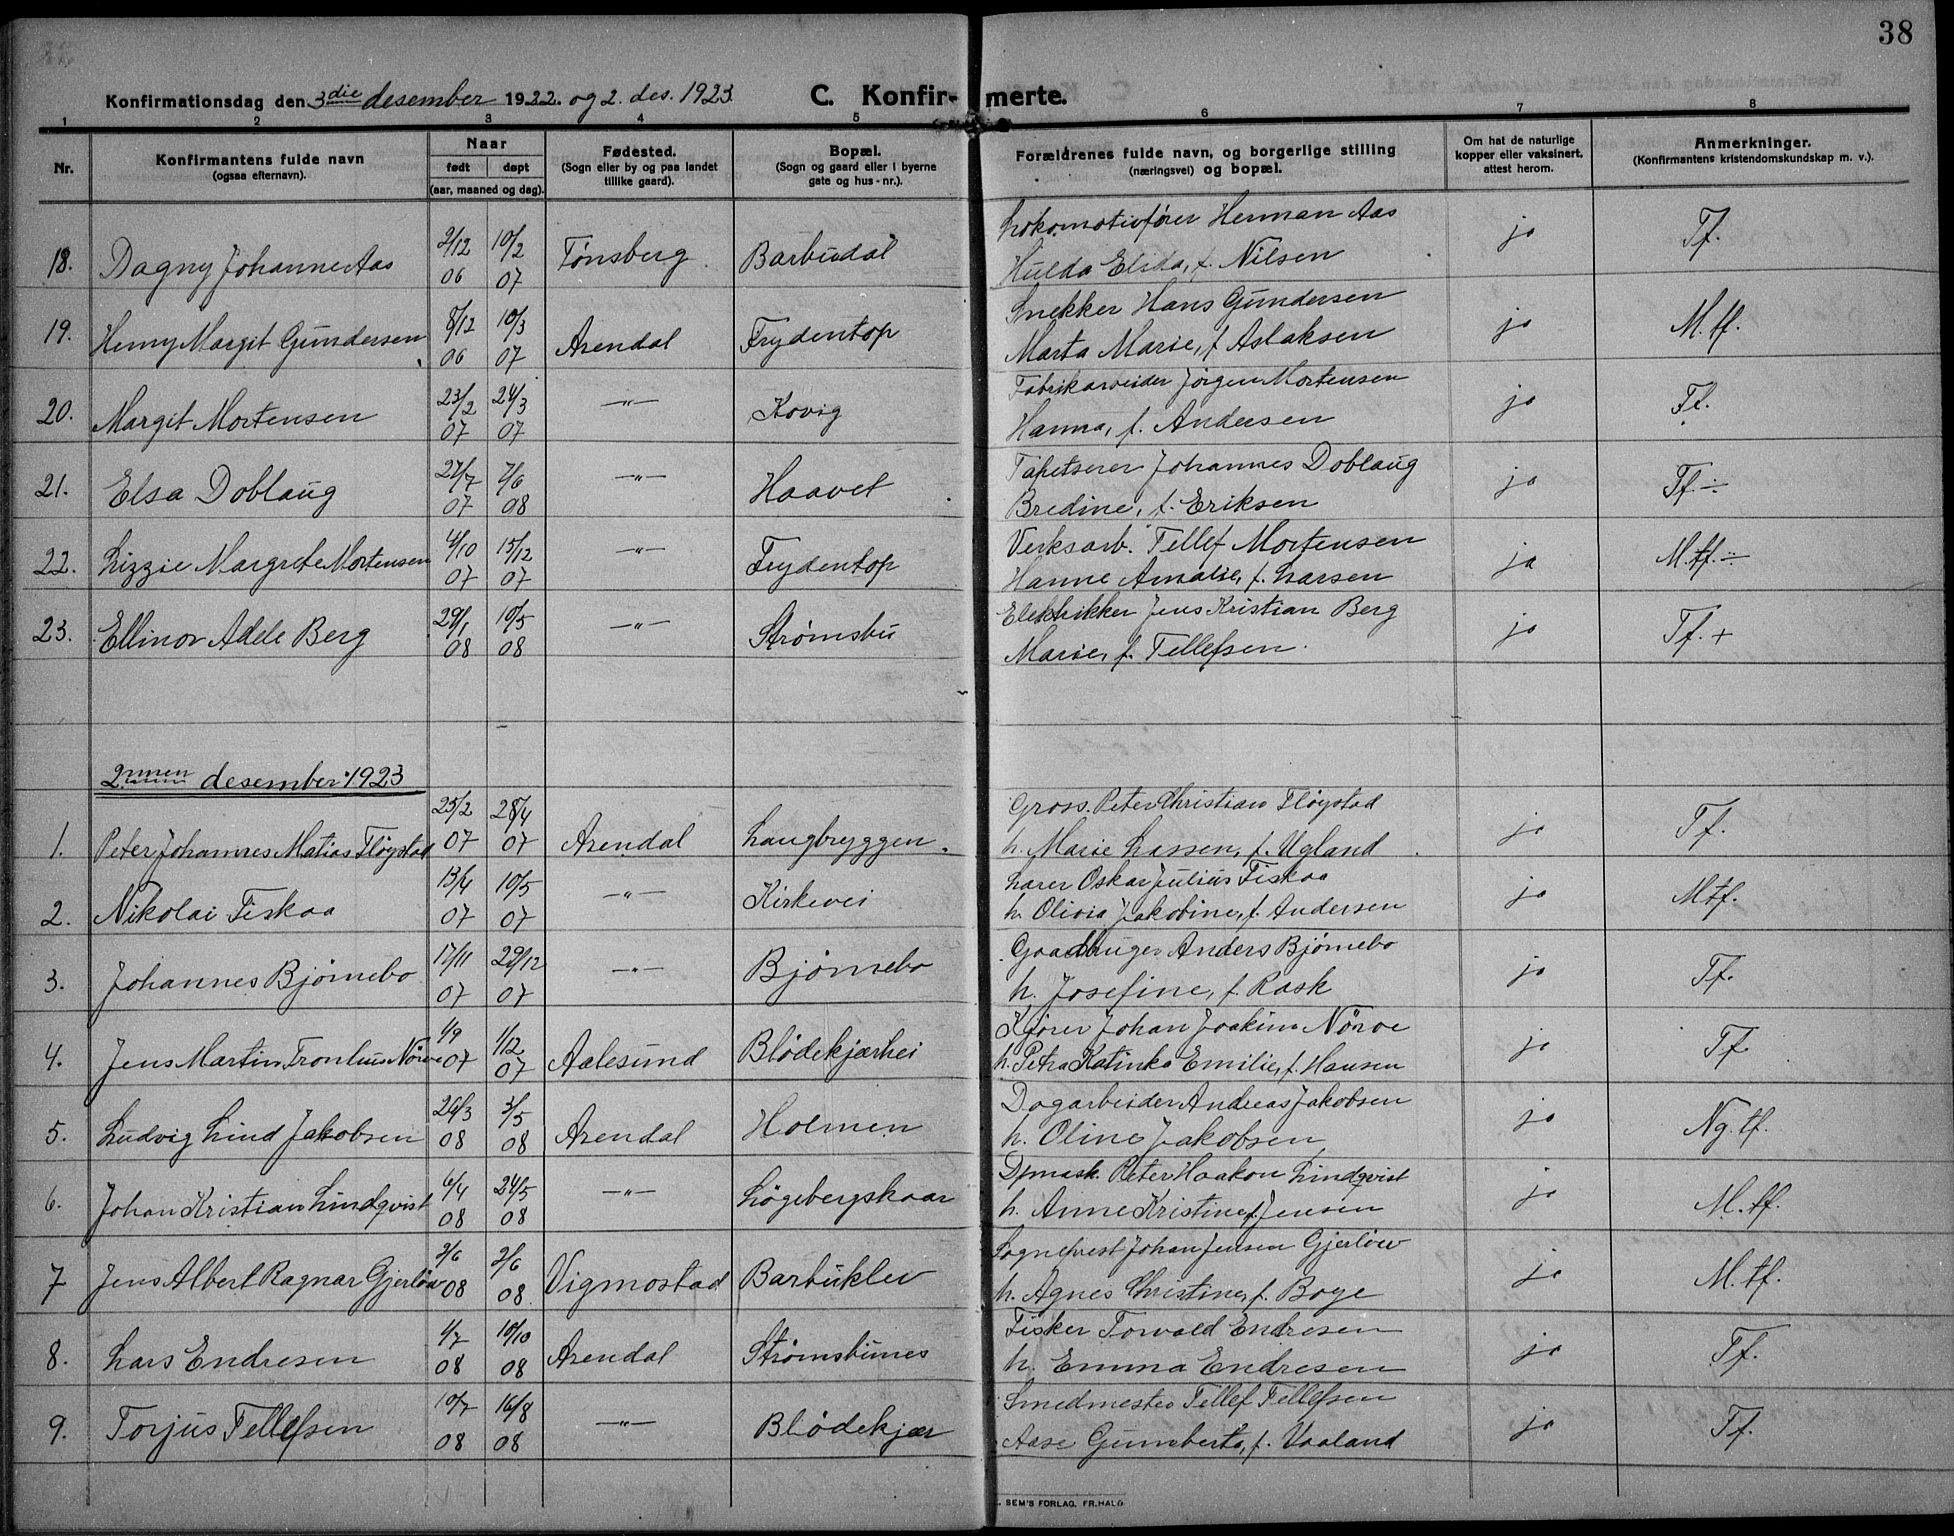 38
Konfirmationsdag den 3die desember 1922. og 2. des. 1923. C. Konfirmerte.
1 2 3 4 5 6 7 8
Nr. Konfirmantens fulde navn (ogsaa efternavn). Naar født døpt (aar, maaned og dag). Fødested. (Sogn eller by og paa landet tillike gaard). Bopæl. (Sogn og gaard eller i byerne gate og hus-nr.). Forældrenes fulde navn, og borgerlige stilling (næringsvei) og bopæl. Om hat de naturlige kopper eller vaksinert, attest herom. Anmerkninger. (Konfirmantens kristendomskundskap m. v.).
18. Dagny Johanne Aas 2/12 06 10/2 07 Tønsberg Barbudal Lokomotivfører Herman Aas
Hulda Elida, f. Nilsen ja Tf.
19. Henny Margit Gundersen 8/12 06 10/3 07 Arendal Frydentop Snekker Hans Gundersen
Marta Marie, f. Aslaksen ja M.tf.
20. Margit Mortensen 23/2 07 24/3 07 —"— Kovig Fabrikarbeider Jørgen Mortensen
Hanna, f. Andersen ja Tf.
21. Elsa Doblaug 27/7 07 7/6 08 —"— Haavet Tapetserer Johannes Doblaug
Bredine, f. Eriksen ja Tf. ÷
22. Lizzie Margrete Mortensen 4/10 07 15/12 07 —"— Frydentop Verksarb. Tellef Mortensen
Hanne Amalie, f. Larsen ja M.tf. ÷
23. Ellinor Adele Berg 29/1 08 10/5 08 —"— Strømsbu Elektrikker Jens Kristian Berg
Marie, f. Tellefsen. ja Tf. +
2nnen desember 1923
1. Peter Johannes Matias Fløystad 25/2 07 28/4 07 Arendal Langbryggen. Gross. Peter Christian Fløystad
h. Marie Lassen, f. Ugland ja Tf.
2. Nikolai Fiskaa 13/4 07 10/5 07 —"— Kirkevei Lærer Oskar Julius Fiskaa
h. Olivia Jakobine, f. Andersen ja Mtf.
3. Johannes Bjørnebo 17/11 07 29/12 07 —"— Bjørnebo Gaardbruger Anders Bjørnebo
h. Josefine, f. Rask ja Tf.
4. Jens Martin Tronhus Nörve 1/9 07 1/12 07 Aalesund Blødekjærhei Kjører Johan Joakim Nörve
h. Petra Katinka Emilie, f. Hansen ja Tf.
5. Ludvig Lind Jakobsen 26/3 08 3/5 08 Arendal Holmen Dagarbeider Andreas Jakobsen
h. Oline Jakobsen ja Ng. tf.
6. Johan Kristian Lindqvist 6/4 08 24/5 08 —"— Løgebergskaar Dpmask. Peter Haakon Lindqvist
h. Anne Kristine f. Jensen ja M. tf.
7 Jens Albert Ragnar Gjerløw 2/6 08 2/6 08 Vigmostad Barbuklev Sogneprest Johan Jensen Gjerløw
h. Agnes Christine, f. Boye ja M. tf.
8. Lars Endresen 1/7 08 10/10 08 Arendal Strømsbunes Fisker Torvald Endresen
h. Emma Endresen ja Tf.
9. Torjus Tellefsen 10/7 08 16/8 08 —"— Blødekjær Smedmester Tellef Tellefsen
Aase Gumberta, f. Vaaland ja Tf.
SEM'S FORLAG, FR.HALD